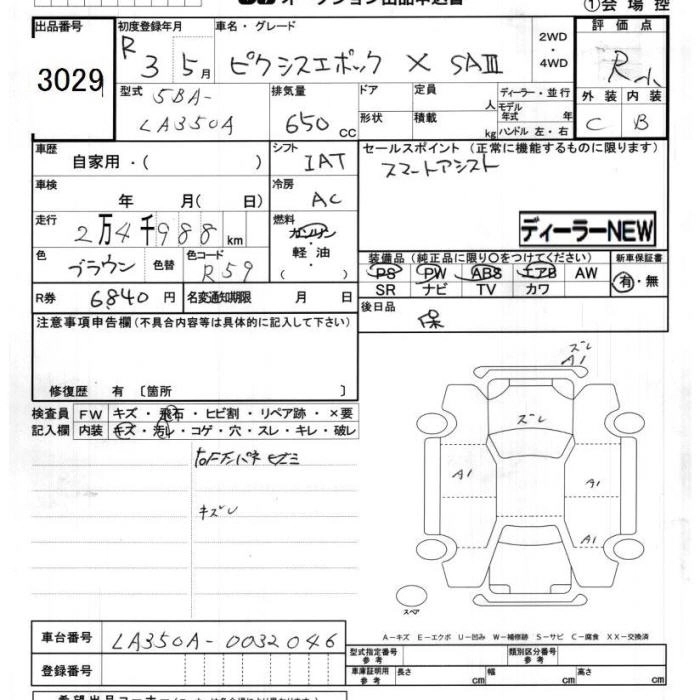 ①会場控
出品番号 初度登録年月 車名・グレード 評価点
R 3 5月 ピクシスエポック X SAⅢ 2WD・4WD R
3029
型式 排気量 ドア 定員 人 ディーラー・並行 外装 内装
5BA-LA350A 650 cc 形状 積載 kg モデル年式 年 ハンドル 左・右 C B
車歴 自家用・( ) シフト IAT セールスポイント (正常に機能するものに限ります)
スマートアシスト
車検 年 月( 日) 冷房 AC
ディーラーNEW
走行 2万4千988km 燃料 ガソリン・軽油・( )
色 ブラウン 色替 色コード R59
装備品 (純正品に限り○をつけてください) 新車保証書
PS PW ABS エアB AW 有・無
SR ナビ TV カワ
R券 6840円 名変通知期限 月 日 後日品 保
注意事項申告欄(不具合内容等は具体的に記入して下さい)
修復歴 有 〔箇所 〕
検査員 FW キズ・飛石・ヒビ割・リペア跡・×要
記入欄 内装 キズ・汚レ・コゲ・穴・スレ・キレ・破レ
キズレ
ズレ
A1
ズレ
A1 A1
A1
スペア
A-キズ E-エクボ U-凹み W-補修跡 S-サビ C-腐食 XX-交換済
車台番号 LA350A-0032046 型式指定番号 参考 類別区分番号 参考
登録番号 車庫証明用 参考 長さ cm 幅 cm 高さ cm